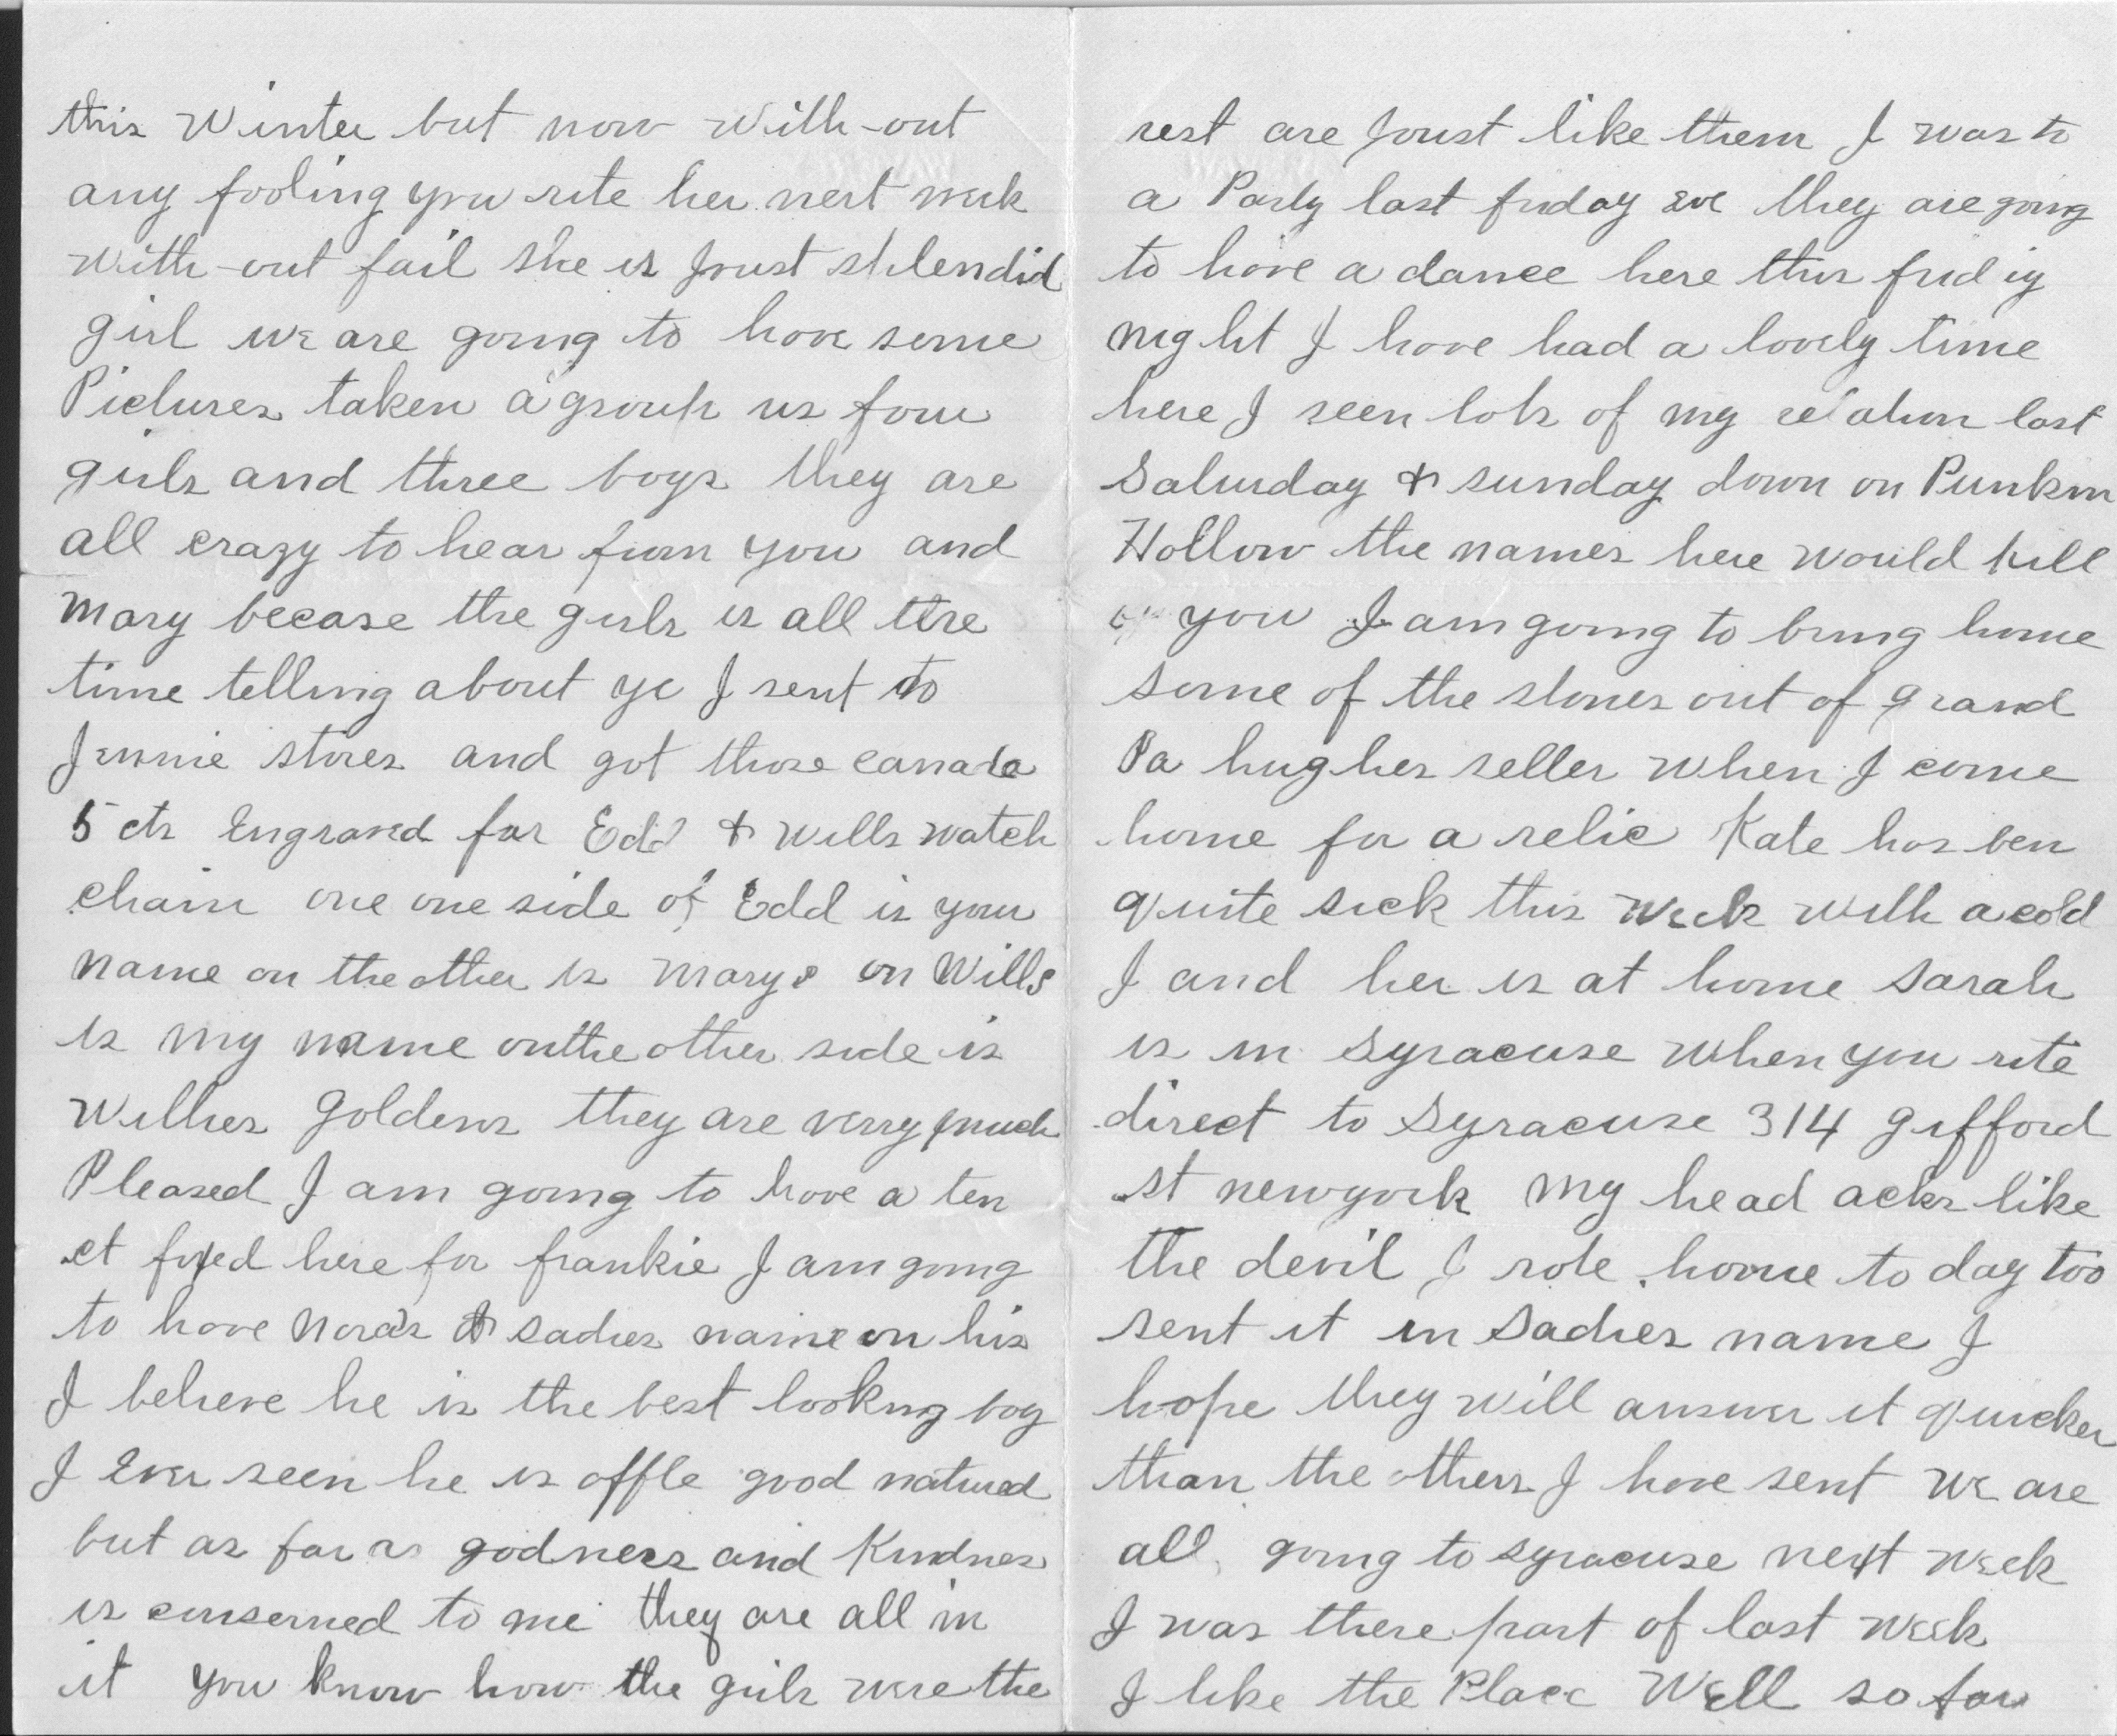 this Winter but now with-out
any fooling you rite her next week
with-out fail she is Joust shlendid
girl we are going to have some
Pictures taken a group us four
girls and three boys they are
all crazy to hear from you and
Mary becase the girls is all the
time telling about ye I sent to
Jennie stores and got those canada
5 cts Engraved for Edd & Wills watch
chain one one side of Edd is your
name on the other is marys on Wills
is my name on the other side is
Willies Goldens they are verry much
Pleased I am going to have a ten
ct fixed here for frankie I am going
to have Nora's & Sadies name on his
I believe he is the best looking boy
I Ever seen he is offle good natured
but as far as godness and Kindness
is conserned to me they are all in
it you know how the girls were the
rest are Joust like them I was to
a Party last friday eve they are going
to have a dance here this friday
night I have had a lovely time
here I seen lots of my relation last
Saturday & sunday down on Punkin
Hollow the names here would kill
you I am going to bring home
some of the stones out of grand
Pa hughes seller when I come
home for a relic Kate has ben
quite sick this week with a cold
I and her is at home Sarah
is in Syracuse when you rite
direct to Syracuse 314 gifford
st newyork My head acks like
the devil I rote home to day too
sent it in Sadies name I
hope they will answer it quicker
than the others I have sent we are
all going to syracuse next week
I was there part of last week
I like the Place Well so far